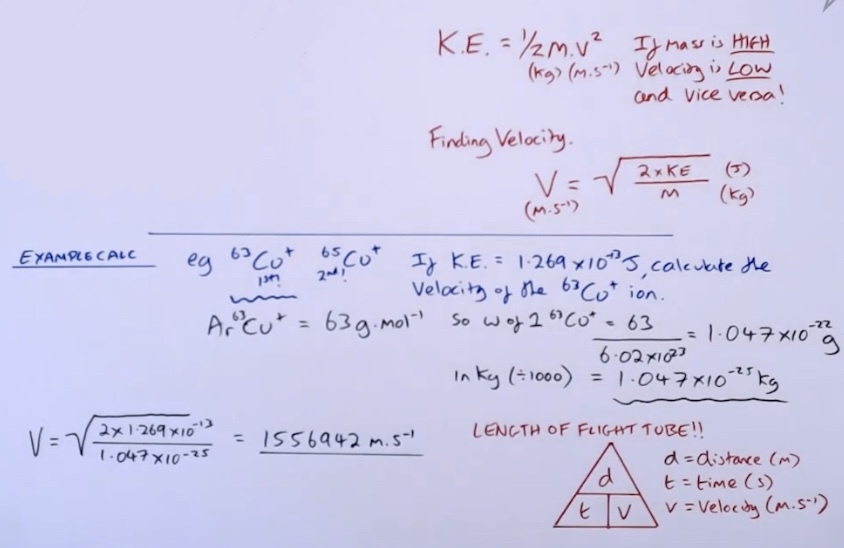 K.E. = 1/2 M.V² If mass is HIGH
(kg) (m.s⁻¹) Velocity is LOW
and vice versa!
Finding Velocity.
V = √(2xKE / M) (J) (kg)
(m.s⁻¹)
EXAMPLE CALC eg ⁶³Cu⁺ ⁶⁵Cu⁺ If K.E. = 1.269 x10⁻¹³J, calculate the
1st! 2nd! Velocity of the ⁶³Cu⁺ ion.
Ar ⁶³Cu⁺ = 63 g.mol⁻¹ So w of 1 ⁶³Cu⁺ = 63 / 6.02x10²³ = 1.047x10⁻²² g
In kg (÷1000) = 1.047x10⁻²⁵ kg
V = √(2x1.269x10⁻¹³ / 1.047x10⁻²⁵) = 1556942 m.s⁻¹
LENGTH OF FLIGHT TUBE!!
d
t V
d = distance (m)
t = time (s)
v = Velocity (m.s⁻¹)